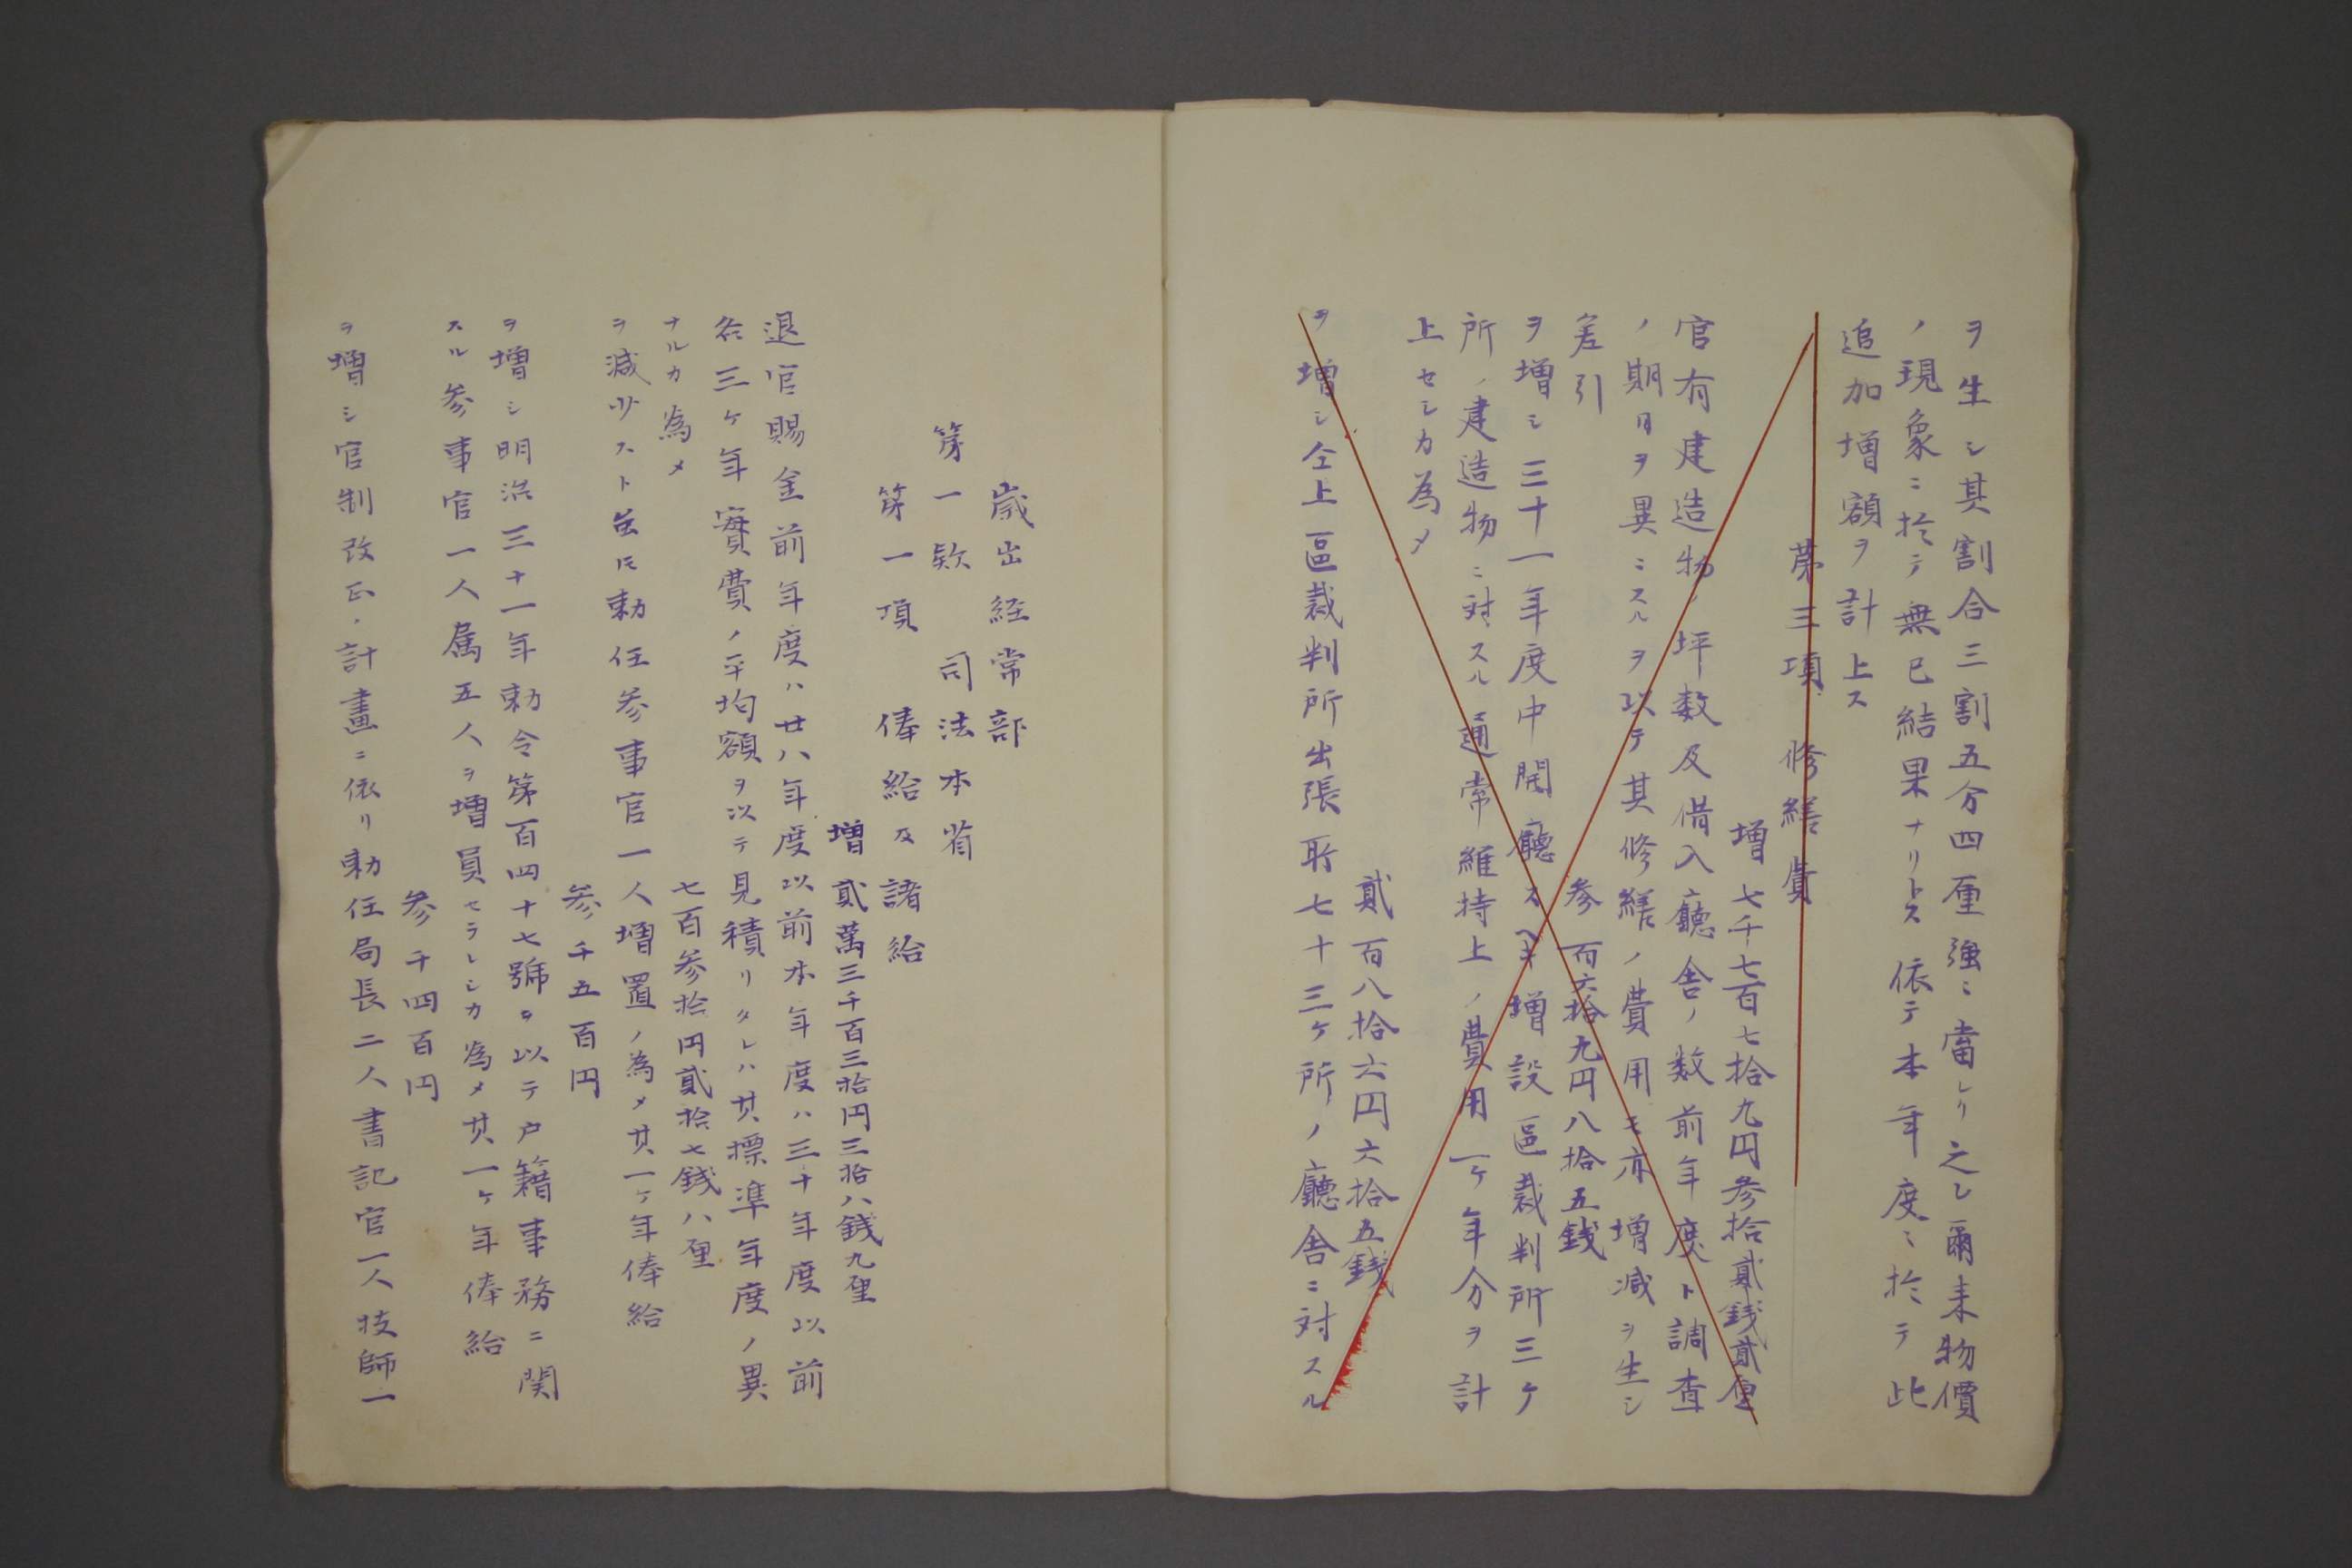 ヲ生シ其割合三割五分四厘強ニ當レリ之レ爾来物價
ノ現象ニ於テ無已結果ナリトス依テ本年度ニ於テ此
追加増額ヲ計上ス
第三項 修繕費
増七千七百七拾九円参拾貳銭貳厘
官有建造物ノ坪数及借入廳舎ノ数前年度ト調査
ノ期日ヲ異ニスルヲ以テ其修繕ノ費用モ亦増減ヲ生シ
差引
参百六拾九円八拾五銭
ヲ増シ三十一年度中開廳スヘキ増設區裁判所三ケ
所ノ建造物ニ対スル通常維持上ノ費用一ケ年分ヲ計
上セシカ為メ
貳百八拾六円六拾五銭
ヲ増シ仝上區裁判所出張所七十三ケ所ノ廳舎ニ対スル
歳出経常部
第一款 司法本省
第一項 俸給及諸給
増貳萬三千百三拾円三拾八銭九厘
退官賜金前年度ハ廿八年度以前本年度ハ三十年度以前
各三ケ年實費ノ平均額ヲ以テ見積リタレハ其標準年度ノ異
ナルカ為メ
七百参拾円貳拾七銭八厘
ヲ減少スト雖モ勅任参事官一人増置ノ為メ其一ケ年俸給
参千五百円
ヲ増シ明治三十一年勅令第百四十七號ヲ以テ戸籍事務ニ関
スル参事官一人属五人ヲ増員セラレシカ為メ其一ケ年俸給
参千四百円
ヲ増シ官制改正ノ計畫ニ依リ勅任局長二人書記官一人技師一